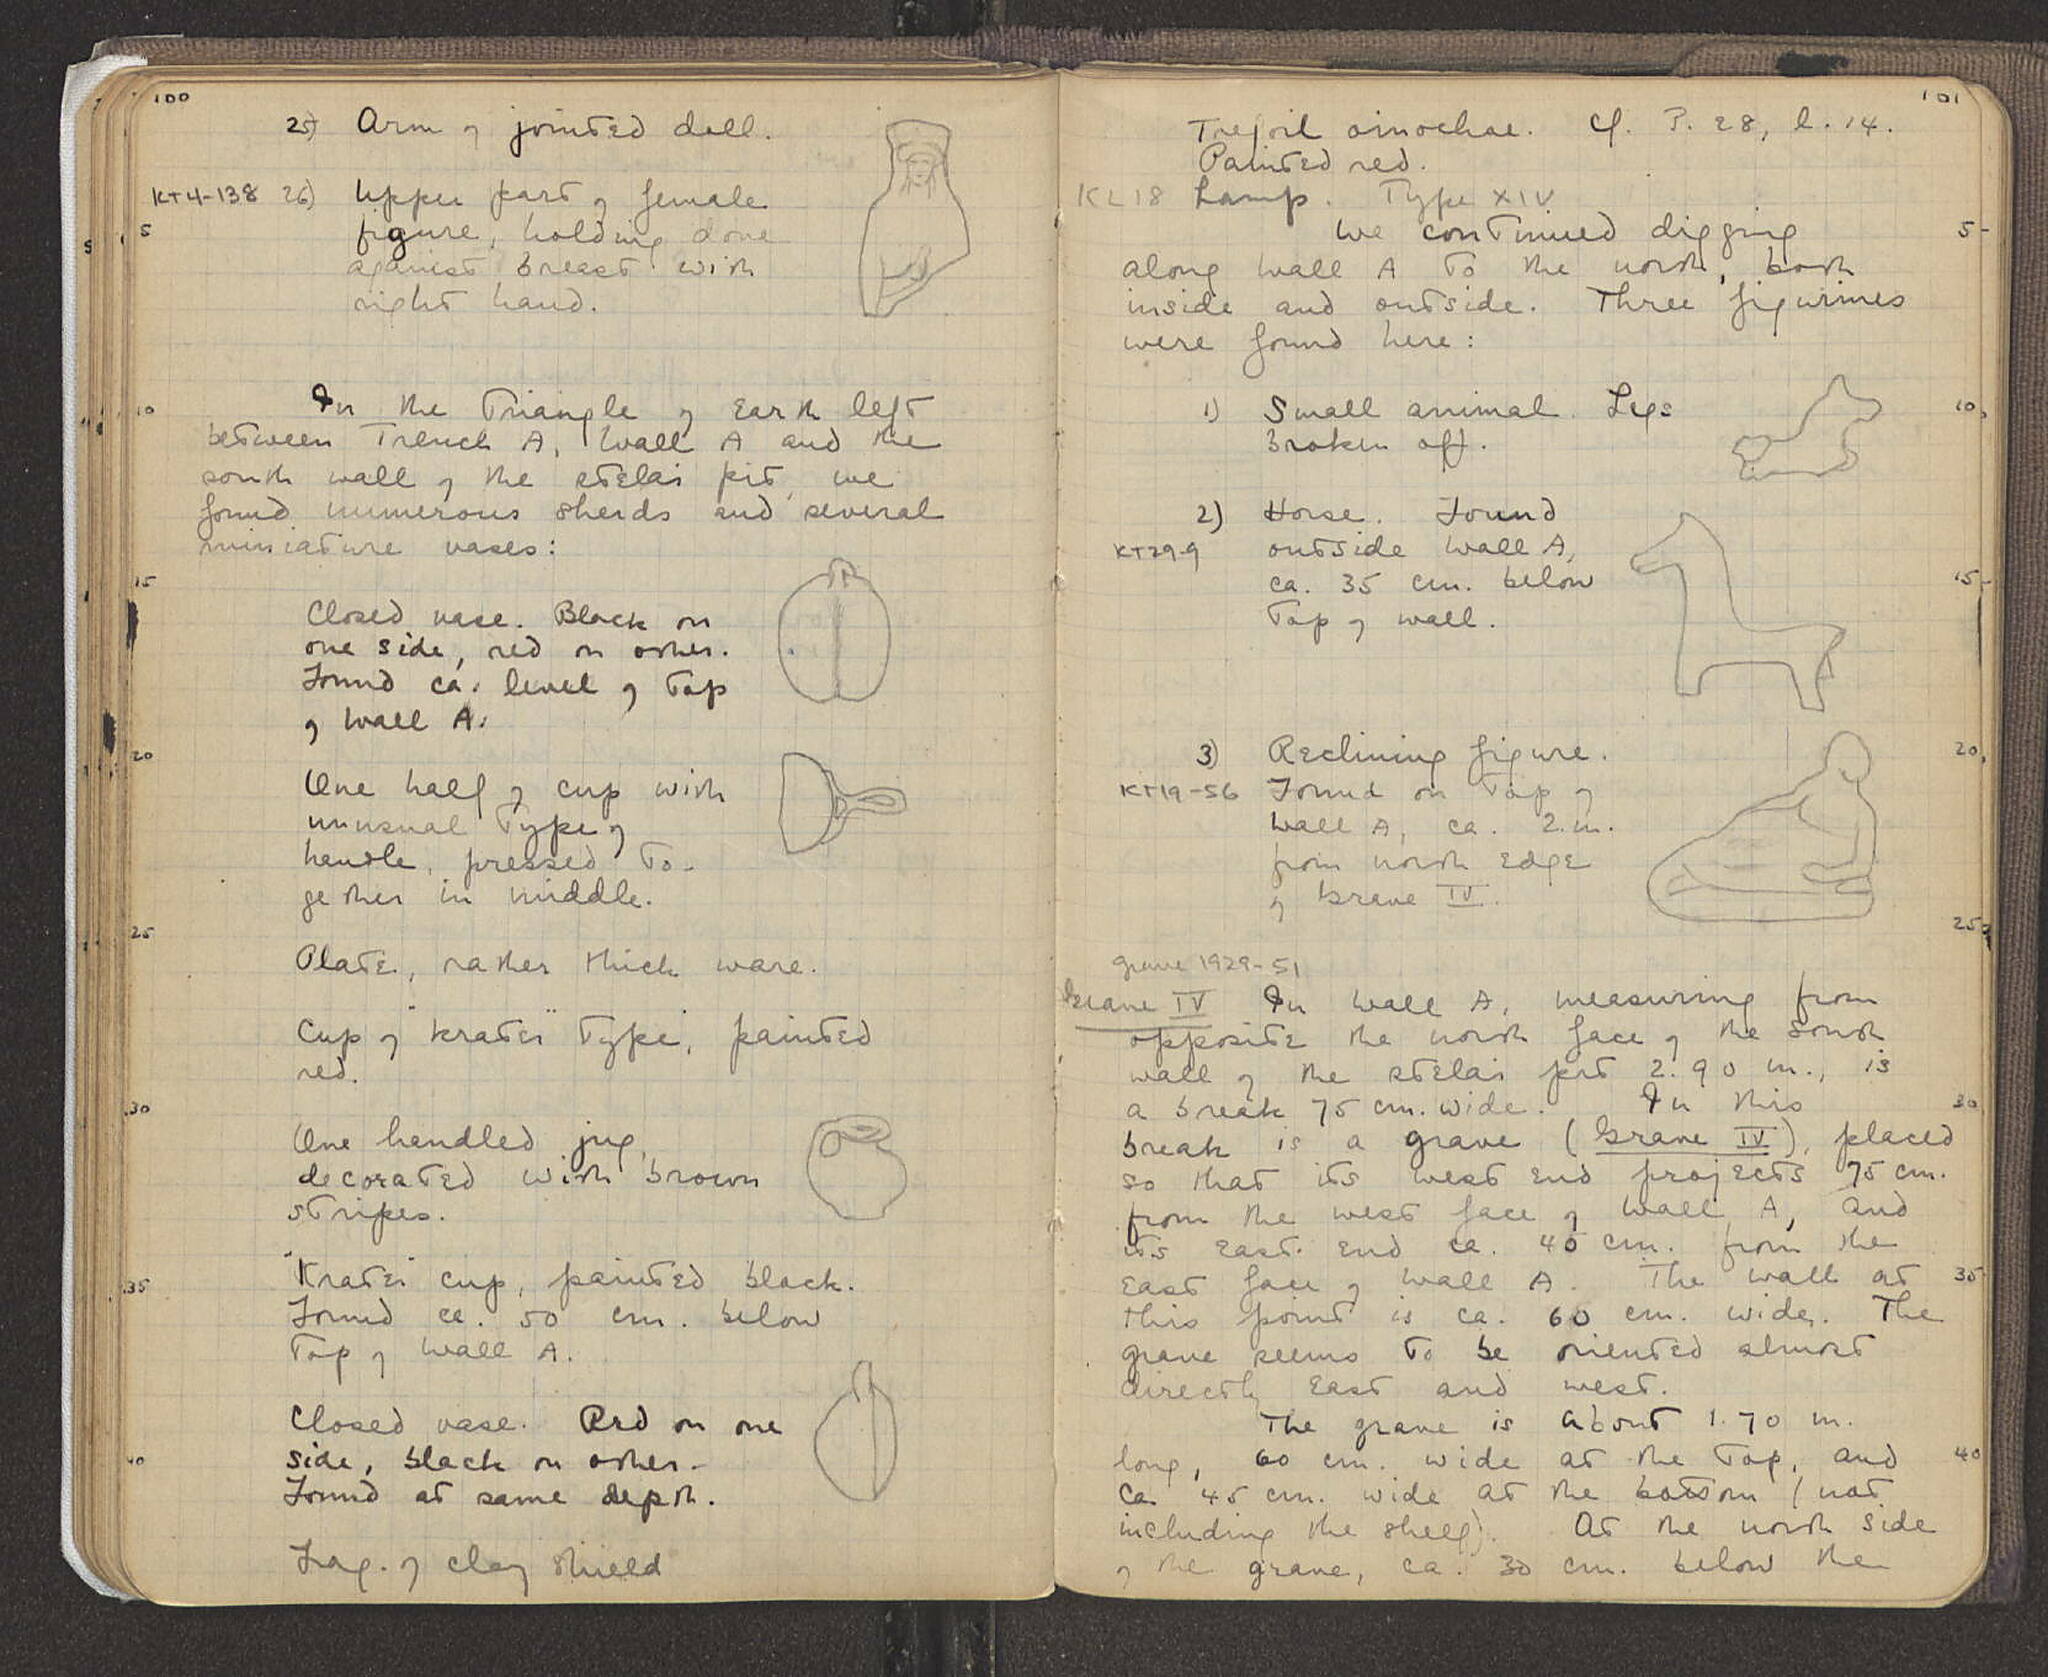 100
25) Arm of jointed doll.
KT4-138 26) Upper part of female
5
figure, holding dove
against breast with
right hand.
10
In the triangle of earth left
between Trench A, Wall A and the
south wall of the stelai pit, we
found numerous sherds and several
miniature vases:
15
Closed vase. Black on
one side, red on other.
Found ca. level of top
of Wall A.
20
One half of cup with
unusual type of
handle, pressed to-
gether in middle.
25
Plate, rather thick ware.
Cup of "krater" type, painted
red.
30
One handled jug,
decorated with brown
stripes.
35
"Krater" cup, painted black.
Found ca. 50 cm. below
top of Wall A.
Closed vase. Red on one
40
side, black on other.
Found at same depth.
Frag. of clay shield
101
Trefoil oinochoe. Cf. P. 28, l. 14.
Painted red.
KL18 Lamp. Type XIV
5
We continued digging
along Wall A to the north, both
inside and outside. Three figurines
were found here:
10
1) Small animal. Legs
broken off.
2) Horse. Found
KT29-9 outside Wall A,
15
ca. 35 cm. below
top of wall.
20
3) Reclining figure.
KT19-56 Found on top of
Wall A, ca. 2.m.
from north edge
of Grave IV.
25
grave 1929-51
Grave IV In Wall A, measuring from
opposite the north face of the south
wall of the stelai pit 2.90 m., is
30
a break 75 cm. wide. In this
break is a grave (Grave IV), placed
so that its west end projects 75 cm.
from the west face of Wall A, and
its east end ca. 40 cm. from the
35
east face of Wall A. The wall at
this point is ca. 60 cm. wide. The
grave seems to be oriented almost
directly east and west.
The grave is about 1.70 m.
40
long, 60 cm. wide at the top, and
ca. 45 cm. wide at the bottom (not
including the shelf). At the north side
of the grave, ca. 30 cm. below the